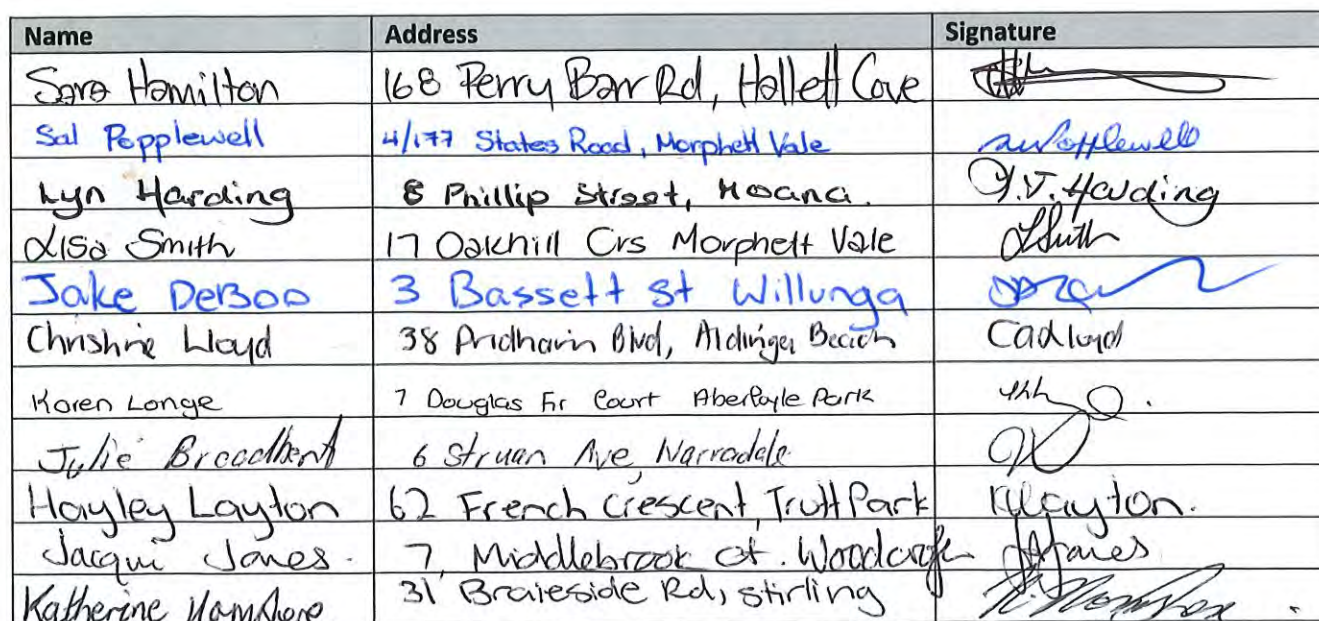 Name Address Signature
Sara Hamilton 168 Perry Barr Rd, Hallett Cove
Sal Popplewell 4/177 States Road, Morphett Vale
Lyn Harding 8 Phillip Street, Moana. Harding
Lisa Smith 17 Oakhill Crs Morphett Vale
Jake DeBoo 3 Bassett St Willunga
Christine Lloyd 38 Pridham Blvd, Aldinga Beach Cadloyd
Karen Longe 7 Douglas Fir Court Aberfoyle Park
Julie Broadbent 6 Struan Ave, Warradale
Hayley Layton 62 French Crescent, Trott Park Layton.
Jacqui Jones. 7, Middlebrook Ct. Woodcroft Jones
Katherine 31 Braieside Rd, Stirling